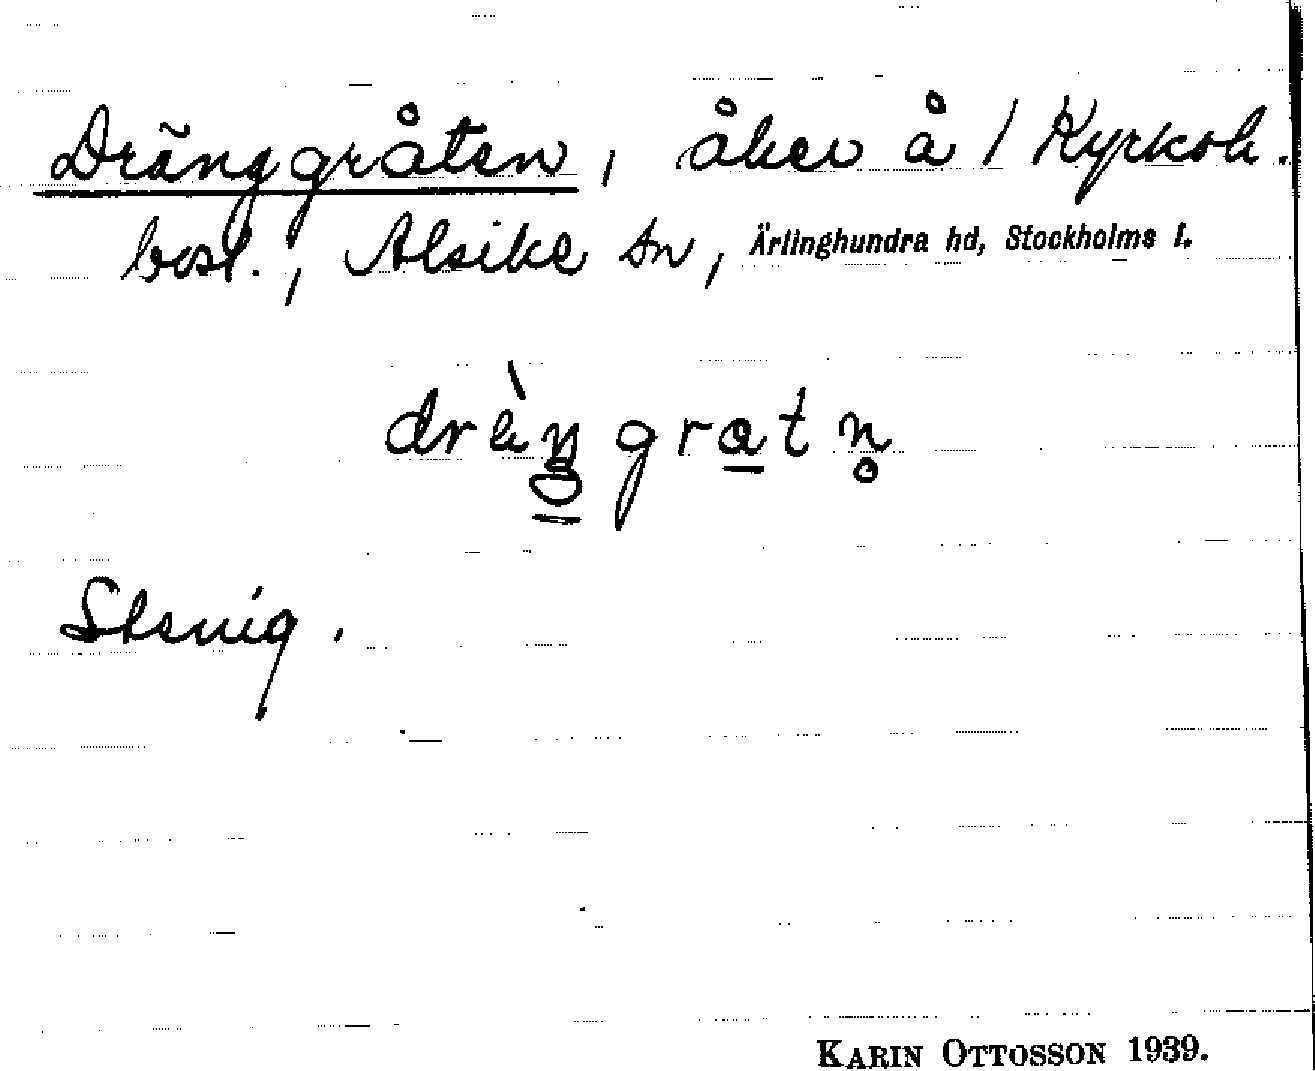 Dränggråten, åker å / Kyrkoh.
bost., Alsike sn, Ärlinghundra hd, Stockholms l.
drä̀ŋgra̲tn̥
Stenig.
KARIN OTTOSSON 1939.